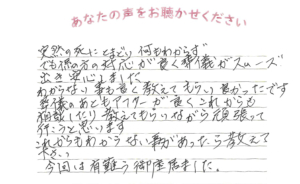 あなたの声をお聴かせください
突然の死にとまどい何もわからず
でも係の方の対応が良く葬儀がスムーズ
出来安心しました
わからない事も良く教えてもらい良かったです
葬儀のあともアフターが良くこれからも
相談したり教えてもらいながら頑張って
行こうと思います
これからもわからない事があったら教えて
下さい
今回は有難う御座居ました。